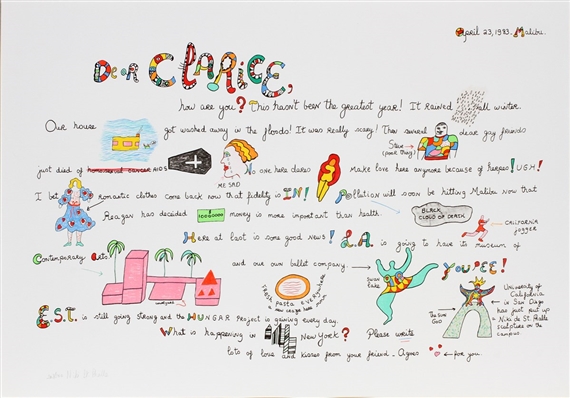 April 23, 1983. Malibu.
Dear CLARICE,
how are you? This hasn't been the greatest year! It Rained all winter.
Our house got washed away in the floods! It was really scary! Then several dear gay friends
Steve (poor thing)
just died of AIDS No one here dares make love here anymore because of herpes! UGH!
ME SAD
I bet romantic clothes come back now that fidelity is IN! Pollution will soon be hitting Malibu now that
Reagan has decided money is more important than health.
BLACK CLOUD OF DEATH
CALIFORNIA JOGGER
Here at last is some good news! L.A. is going to have its museum of
Contemporary Arts! and our own ballet company: YOUPEE!
FRESH PASTA EVERYWHERE
Swan Lake
The Sun God
University of California in San Diego has just put up Niki de St. Phalle sculpture on the campus
E.S.T. is still going strong and the HUNGAR Project is gaining every day.
What is happening in NEW YORK? Please write
lots of love and kisses from your friend - Agnes for you.